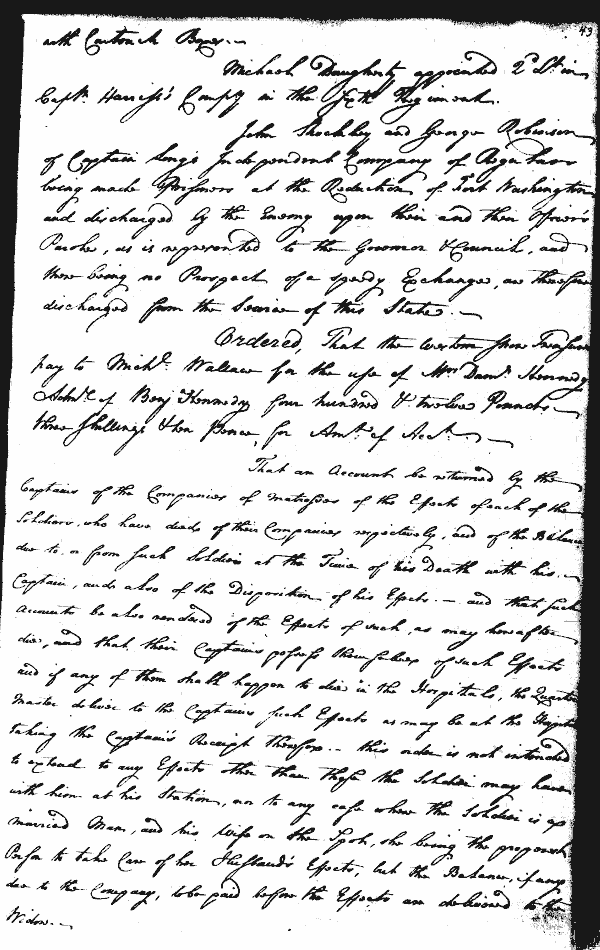 43
with Cartouch Boxes.—
Michael Daugherty appointed 2d Lt. in
Captn. Harriss's Compy in the Sixth Regiment.
John Shockley and George Robinson
of Captain Longs Independent Company of Regulars
being made Prisoners at the Reduction of Fort Washington
and discharged by the Enemy upon their and their Officers
Parole, as is represented to the Governor & Council, and
there being no Prospect of a speedy Exchange, are therefore
discharged from the Service of this State.—
Ordered, That the western Shore Treasurer
pay to Michl. Wallace for the use of Mrs. Kennedy
Admx. of Benj Kennedy four hundred & twelve Pounds
three Shillings & ten Pence, for Amt. of Acct.—
That an Account be returned by the
Captains of the Companies of matrosses of the Effects of each of the
Soldiers, who have died of their Companies respectively, and of the Balance
due to or from such Soldier at the Time of his Death with his
Captain, and also of the Disposition of his Effects.— and that such
Accounts be also rendered of the Effects of such, as may hereafter
die, and that their Captains possess themselves of such Effects
and if any of them shall happen to die in the Hospitals, the Quarter
Master deliver to the Captains such Effects as may be at the Hospital
taking the Captain's Receipt therefor.— this order is not intended
to extend to any Effects other than those the Soldier may have
with him at his Station, nor to any case where the Soldier is a
married Man, and his Wife on the Spot, she being the properest
Person to take Care of her Husband's Effects, but the Balance, if any
due to the Company, to be paid before the Effects are delivered to the
Widow.—